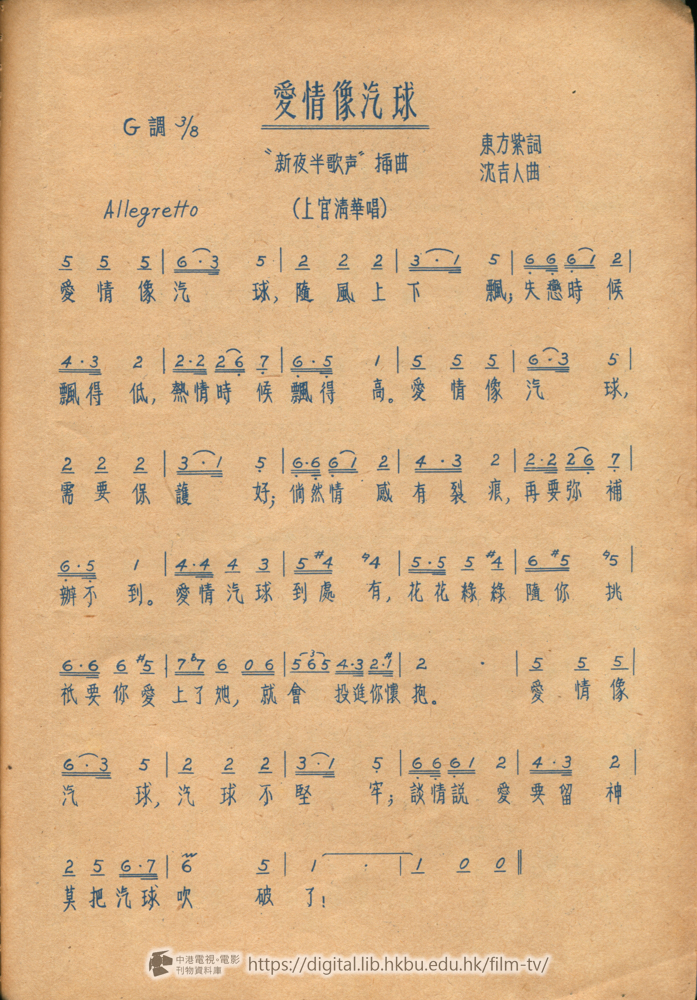 愛情像汽球
G調 3/8
"新夜半歌声" 插曲
東方紫詞
沈吉人曲
Allegretto
(上官清華唱)
5 5 5 | 6·3 5 | 2 2 2 | 3·1 5 | 6 6 6 1 2 |
愛情像汽球,隨風上下飄;失戀時候
4·3 2 | 2·2 2 6 7 | 6·5 1 | 5 5 5 | 6·3 5 |
飄得低,熱情時候飄得高。愛情像汽球,
2 2 2 | 3·1 5 | 6·6 6 1 2 | 4·3 2 | 2·2 2 6 7 |
需要保護好;倘然情感有裂痕,再要弥補
6·5 1 | 4·4 4 3 | 5 #4 ♮4 | 5·5 5 #4 | 6 #5 ♮5 |
辦不到。愛情汽球到處有,花花綠綠隨你挑
6·6 6 #5 | 7 ♭7 6 0 6 | 5 6 5 4·3 2·#1 | 2 · | 5 5 5 |
祇要你愛上了她,就會投進你懷抱。愛情像
6·3 5 | 2 2 2 | 3·1 5 | 6 6 6 1 2 | 4·3 2 |
汽球,汽球不堅牢;談情説愛要留神
2 5 6·7 | 6 5 | 1 · | 1 0 0 ‖
莫把汽球吹破了!
中港電視·電影
刊物資料庫
https://digital.lib.hkbu.edu.hk/film-tv/